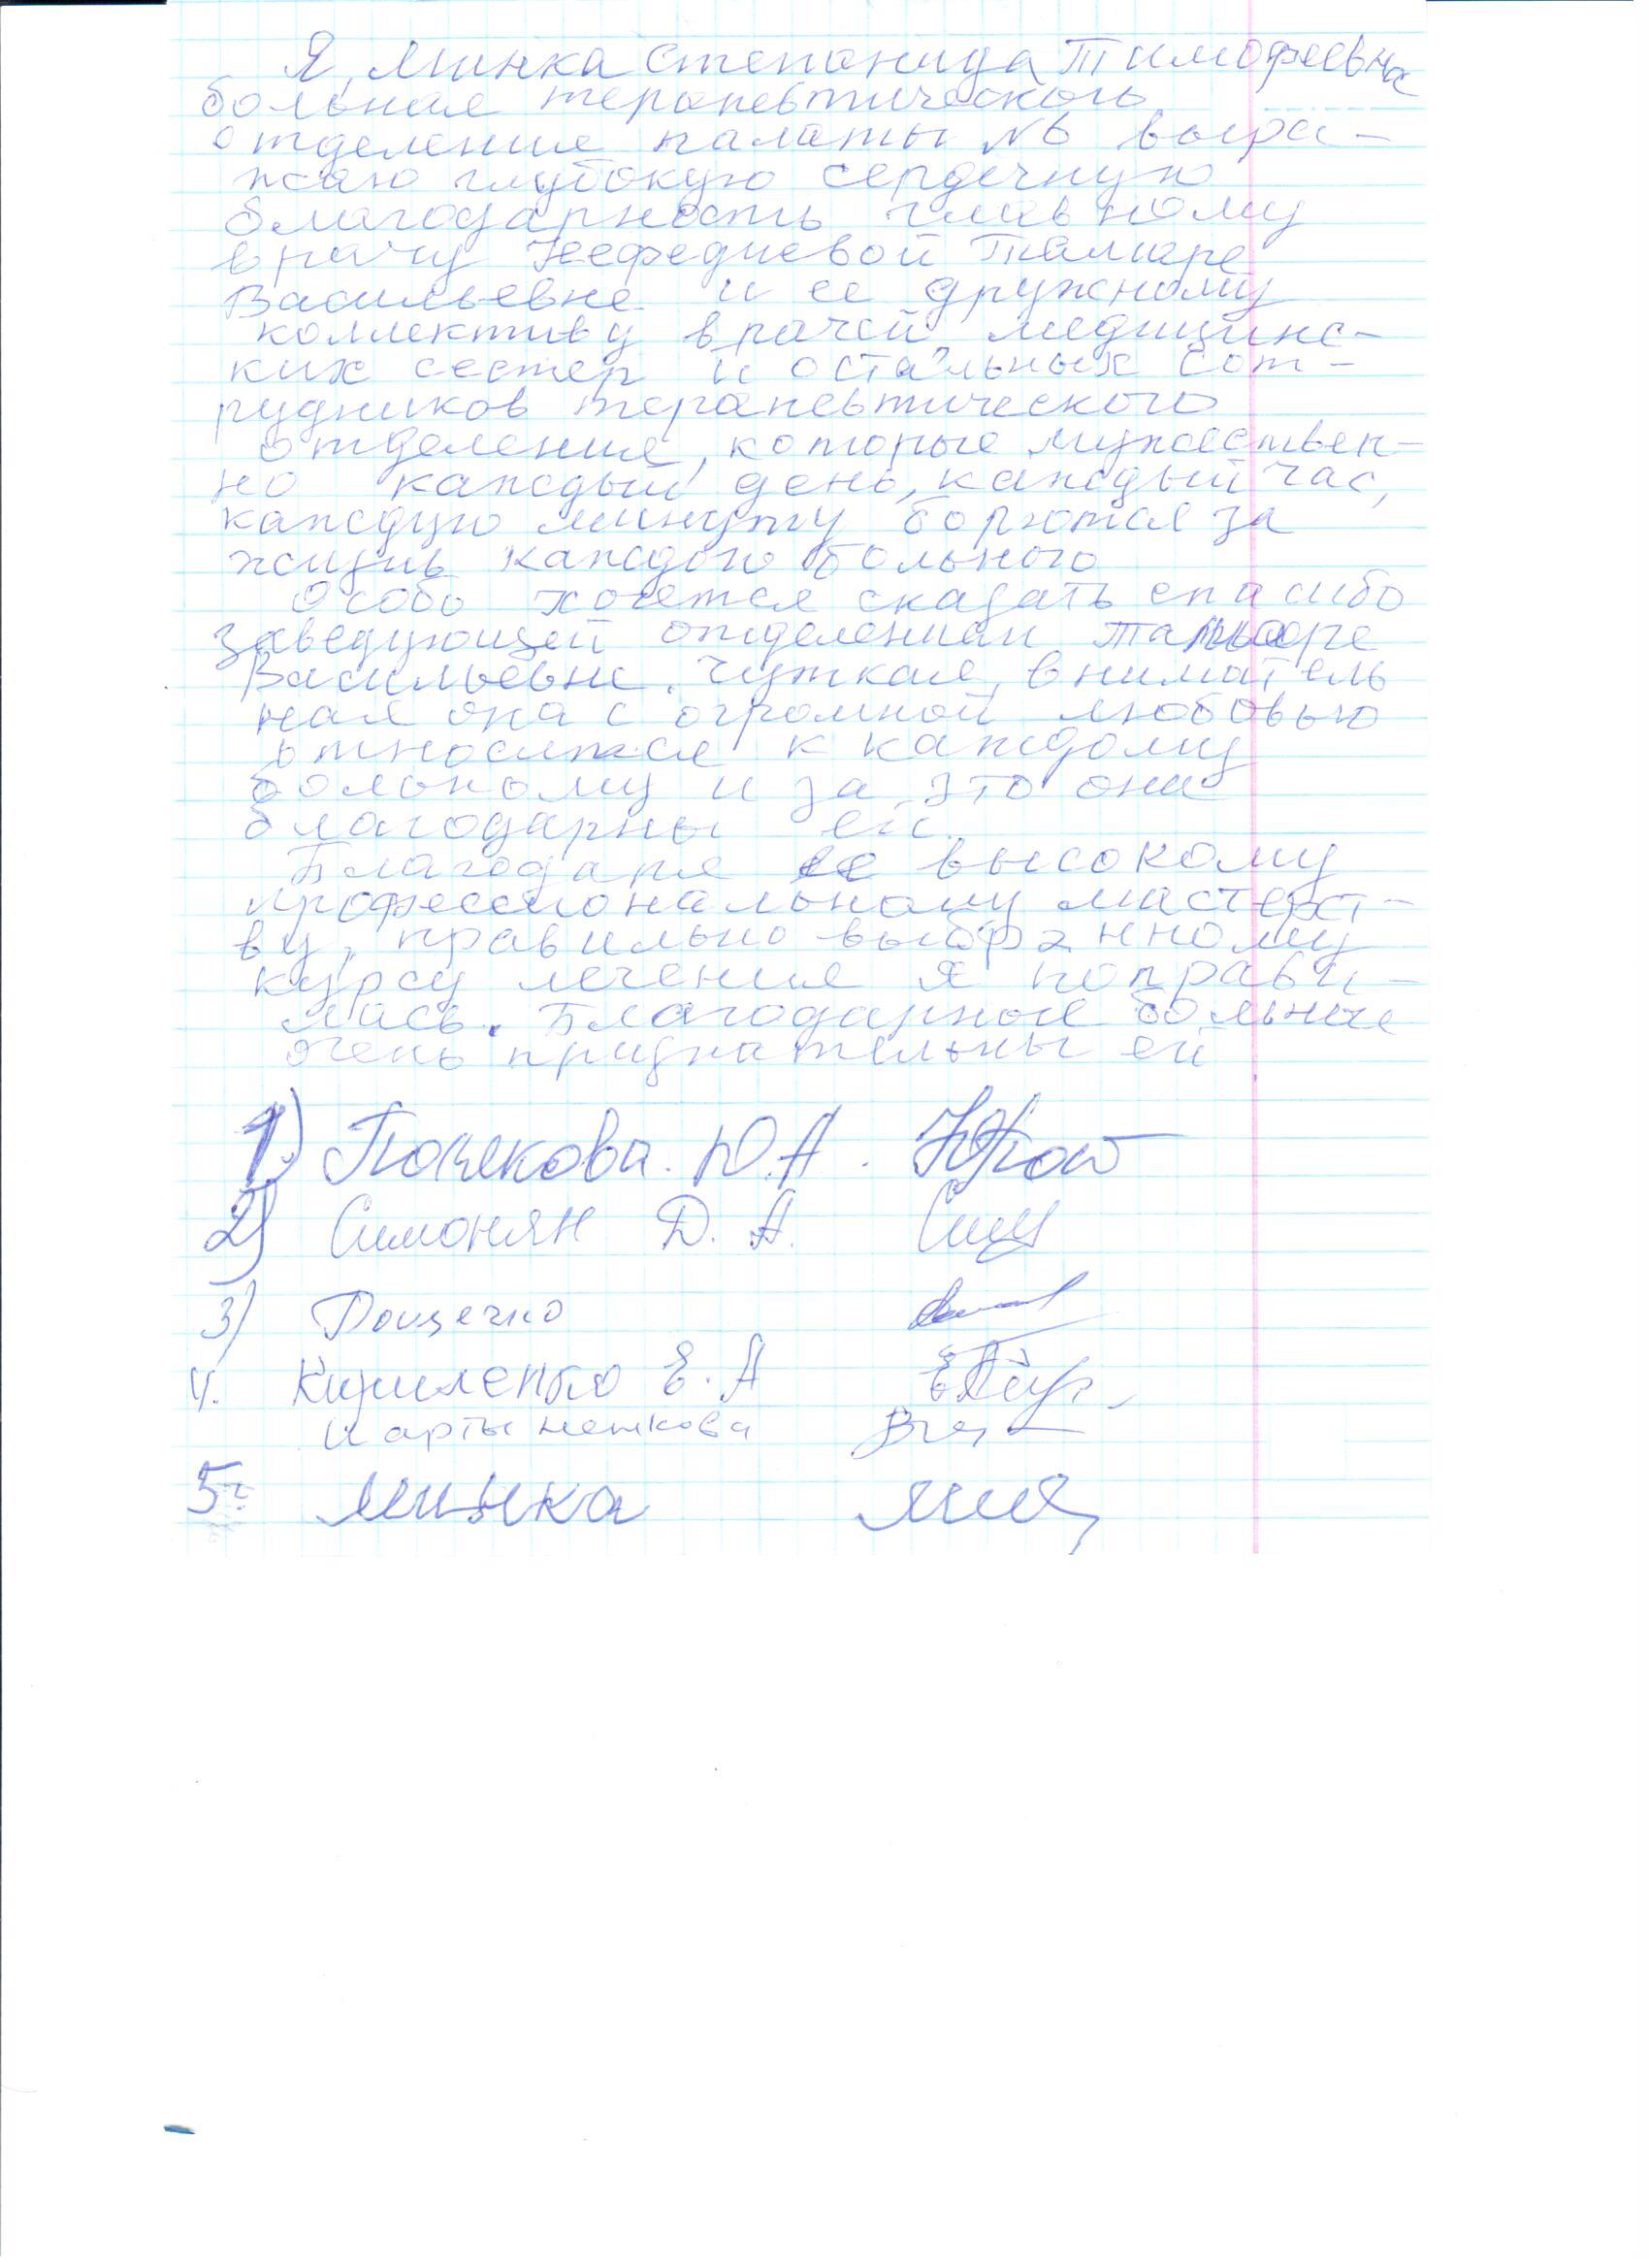 Я, Минка Степанида Тимофеевна
больная терапевтического
отделение палаты №6 выра-
жаю глубокую сердечную
благодарность главному
врачу Нефедиевой Тамаре
Васильевне и ее дружному
коллективу врачей медицинс-
ких сестер и остальных сот-
рудников терапевтического
отделения, которые мужествен-
но каждый день, каждый час,
каждую минуту борются за
жизнь каждого больного
Особо хочется сказать спасибо
заведующей отделением Тамаре
Васильевне. Чуткая, вниматель
ная она с огромной любовью
относится к каждому
больному и за это они
благодарны ей.
Благодаря ее высокому
профессиональному мастерст-
ву, правильно выбранному
курсу лечения я поправи-
лась. Благодарные больные
очень признательны ей
1.) Ю.А.
2) Симонян Д. А.
3)
4. Кириленко Е. А
5. Минка